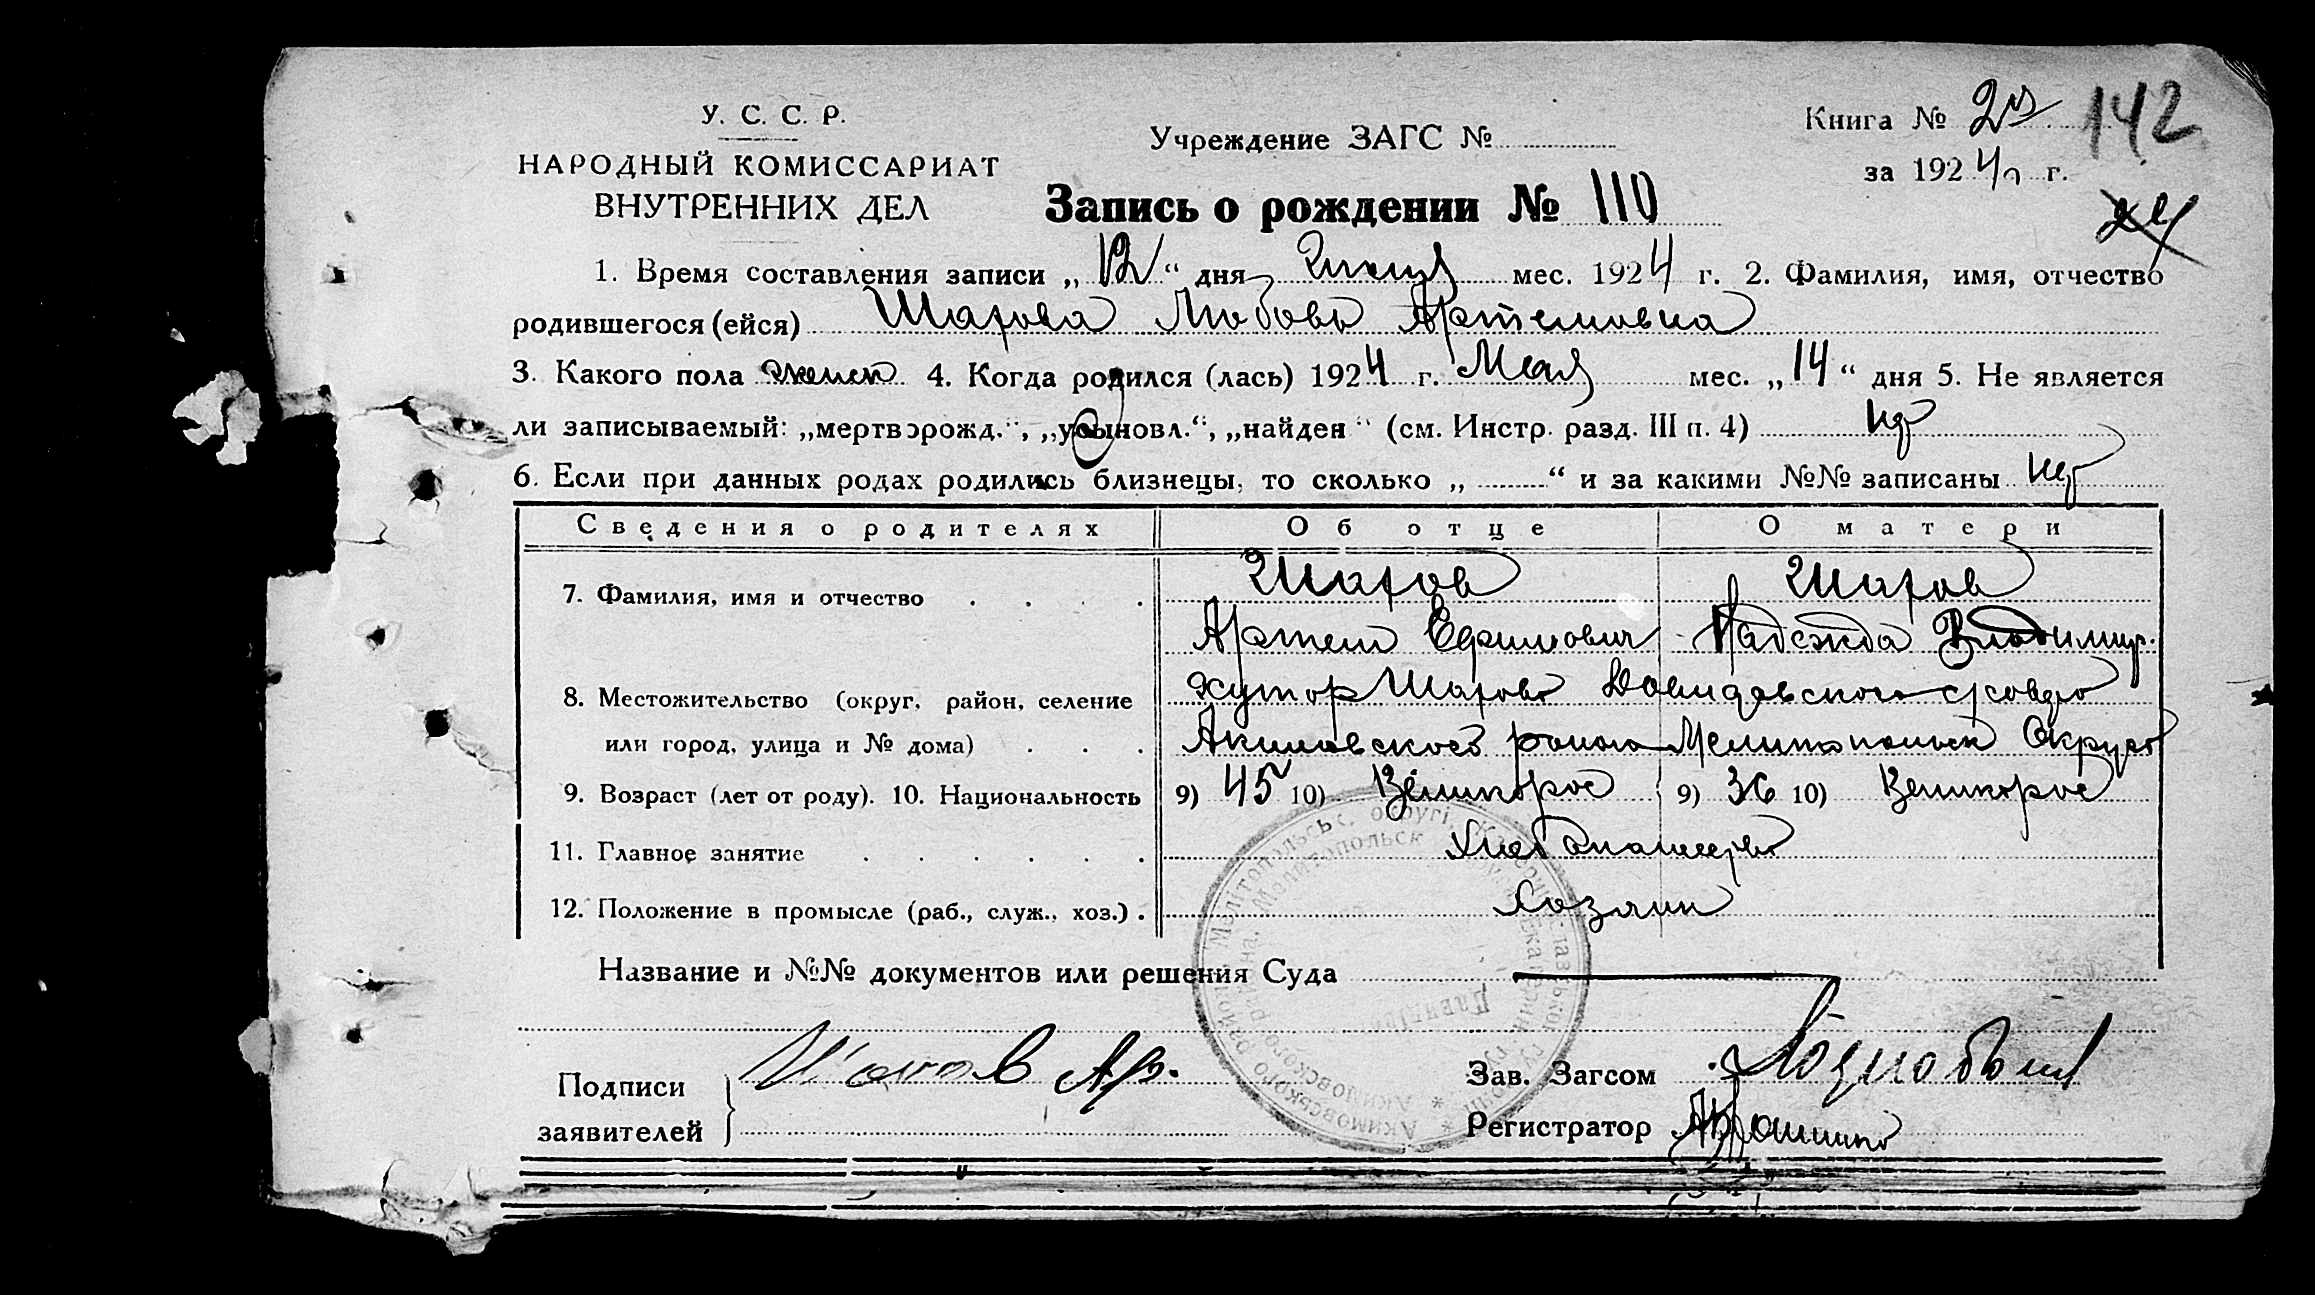 У. С. С. Р.
НАРОДНЫЙ КОМИССАРИАТ
ВНУТРЕННИХ ДЕЛ
Учреждение ЗАГС №
Книга № 2й 142
за 1924 г.
24
Запись о рождении № 110
1. Время составления записи „12“ дня мес. 1924 г. 2. Фамилия, имя, отчество
родившегося (ейся) Шарова Любовь Артемовна
3. Какого пола женск 4. Когда родился (лась) 1924 г. Мая мес. „14“ дня 5. Не является
ли записываемый: „мертворожд.“, „усыновл.“, „найден“ (см. Инстр. разд. III п. 4) нет
6. Если при данных родах родились близнецы, то сколько „ “ и за какими №№ записаны нет
Сведения о родителях Об отце О матери
7. Фамилия, имя и отчество Шаров Шаров
Артем Ефимович Надежда Владимир.
8. Местожительство (округ, район, селение хутор Шарово Давидовского с/совета
или город, улица и № дома) Акимовского района Мелитопольск Округа
9. Возраст (лет от роду). 10. Национальность 9) 45 10) Великорос 9) 36 10) Великорос
11. Главное занятие Хлебопашество
12. Положение в промысле (раб., служ., хоз.) Хозяин
Название и №№ документов или решения Суда
Подписи заявителей Шаров Ар.
Зав. Загсом
Регистратор